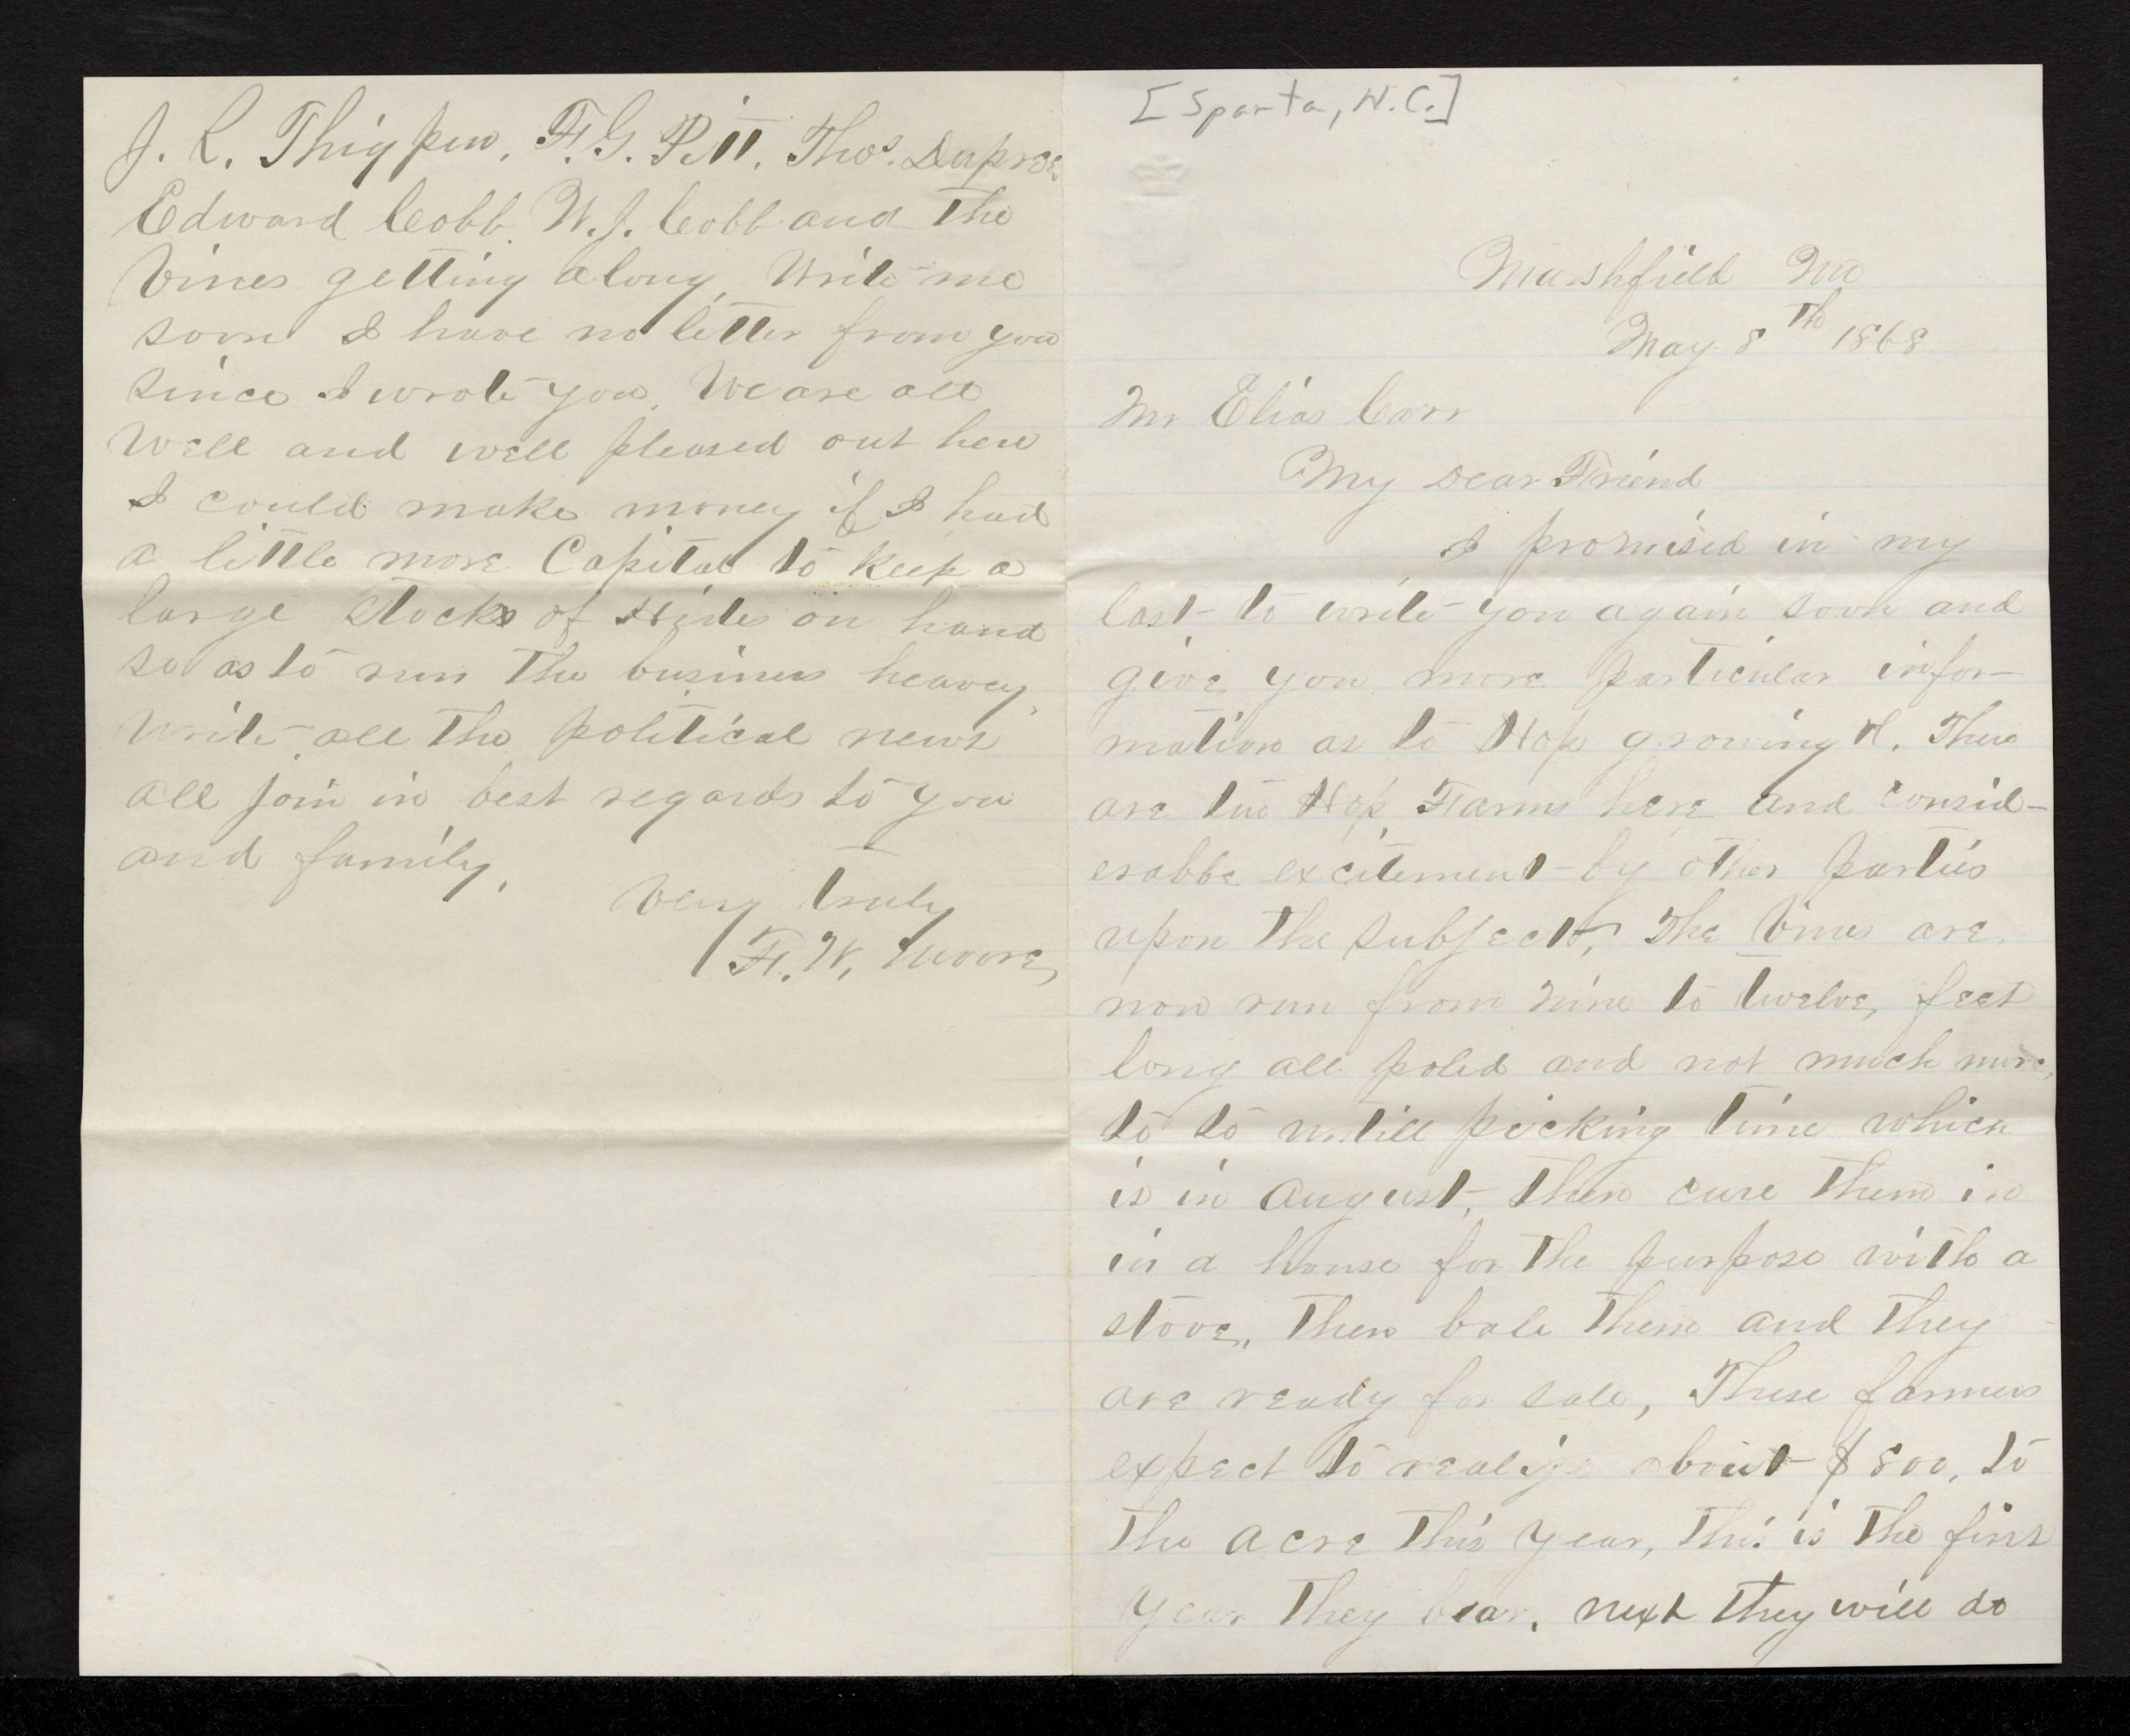 [Sparta, N.C.]
Marshfield Mo
May 8th 1868
Mr Elias Carr
My Dear Friend
I promised in my
last to write you again soon and
give you more particular infor-
mation as to Hop growing &. There
are two Hop Farms here and consid-
erabbe excitement by other parties
upon the subject, The Vines are
now run from nine to twelve, feet
long all poled and not much more,
to to untill picking time which
is in August, then cure them in
in a house for the purpose with a
stove, then bale them and they
are ready for sale, These farmers
expect to realize about $800, to
the acre this year, this is the first
year they bear, next they will do
J. L. Thigpen, F. G. Pitt, Thos. Dupree
Edward Cobb, W. J. Cobb and the
Vines getting along, Write me
soon I have no letter from you
since I wrote you, We are all
well and well pleased out here
I could make money if I had
a little more Capital to keep a
large Stock of Hides on hand
so as to run the business heavey,
Write all the political news
all join in best regards to you
and family,
Very truly
F. W. Moore,